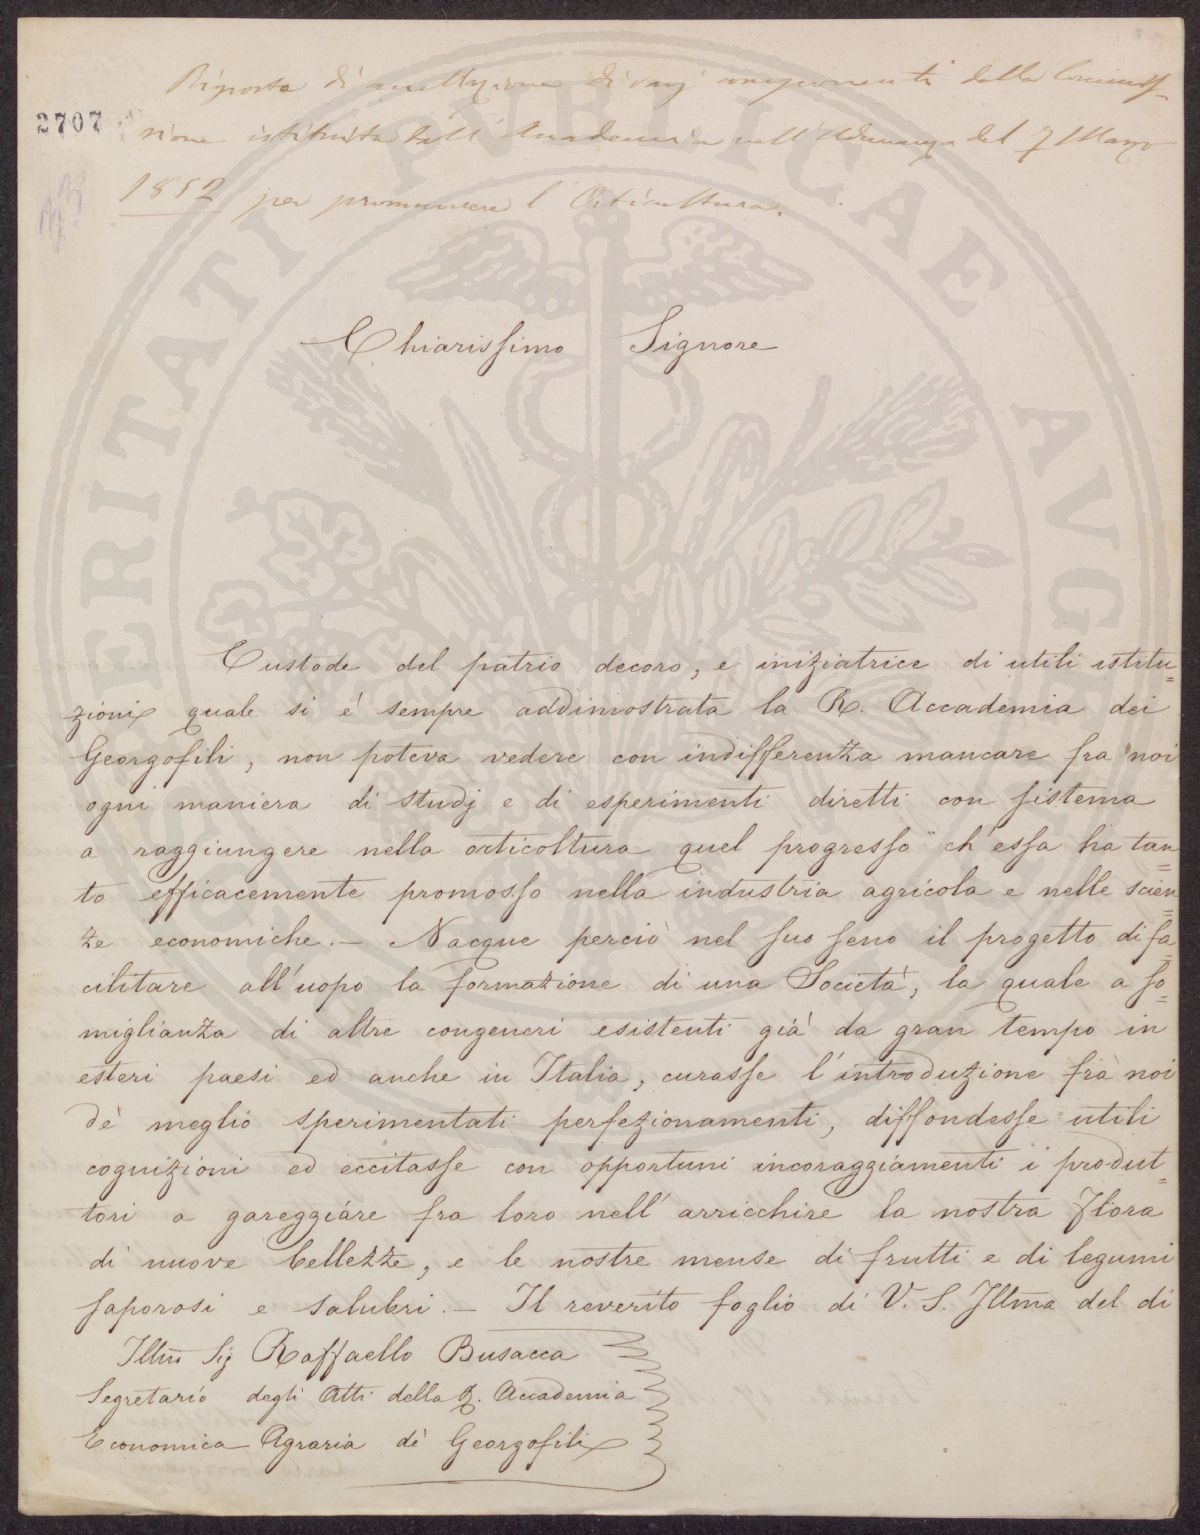 Risposta di accettazione di varj componenti della Commis-
2707
sione istituita dall'Accademia nell'Adunanza del 7 Marzo
1852 per promuovere l'Orticultura.
Chiarissimo Signore
Custode del patrio decoro, e iniziatrice di utili istitu=
zioni quale si é sempre addimostrata la R. Accademia dei
Georgofili, non poteva vedere con indifferenza mancare fra noi
ogni maniera di studj e di esperimenti diretti con sistema
a raggiungere nella orticoltura quel progresso ch'essa ha tan=
to efficacemente promosso nella industria agricola e nelle scien=
ze economiche. — Nacque perciò nel suo seno il progetto di fa=
cilitare all'uopo la formazione di una Società, la quale a so=
miglianza di altre congeneri esistenti già da gran tempo in
esteri paesi ed anche in Italia, curasse l'introduzione fra noi
dè meglio sperimentati perfezionamenti, diffondesse utili
cognizioni ed eccitasse con opportuni incoraggiamenti i produt=
tori a gareggiare fra loro nell'arricchire la nostra Flora
di nuove bellezze, e le nostre mense di frutti e di legumi
saporosi e salubri. — Il reverito foglio di V. S. Illma del di
Illm Sig Raffaello Busacca
Segretario degli Atti della R. Accademia
Economica Agraria dè Georgofili
PROSPERITATI PVBLICAE AVG